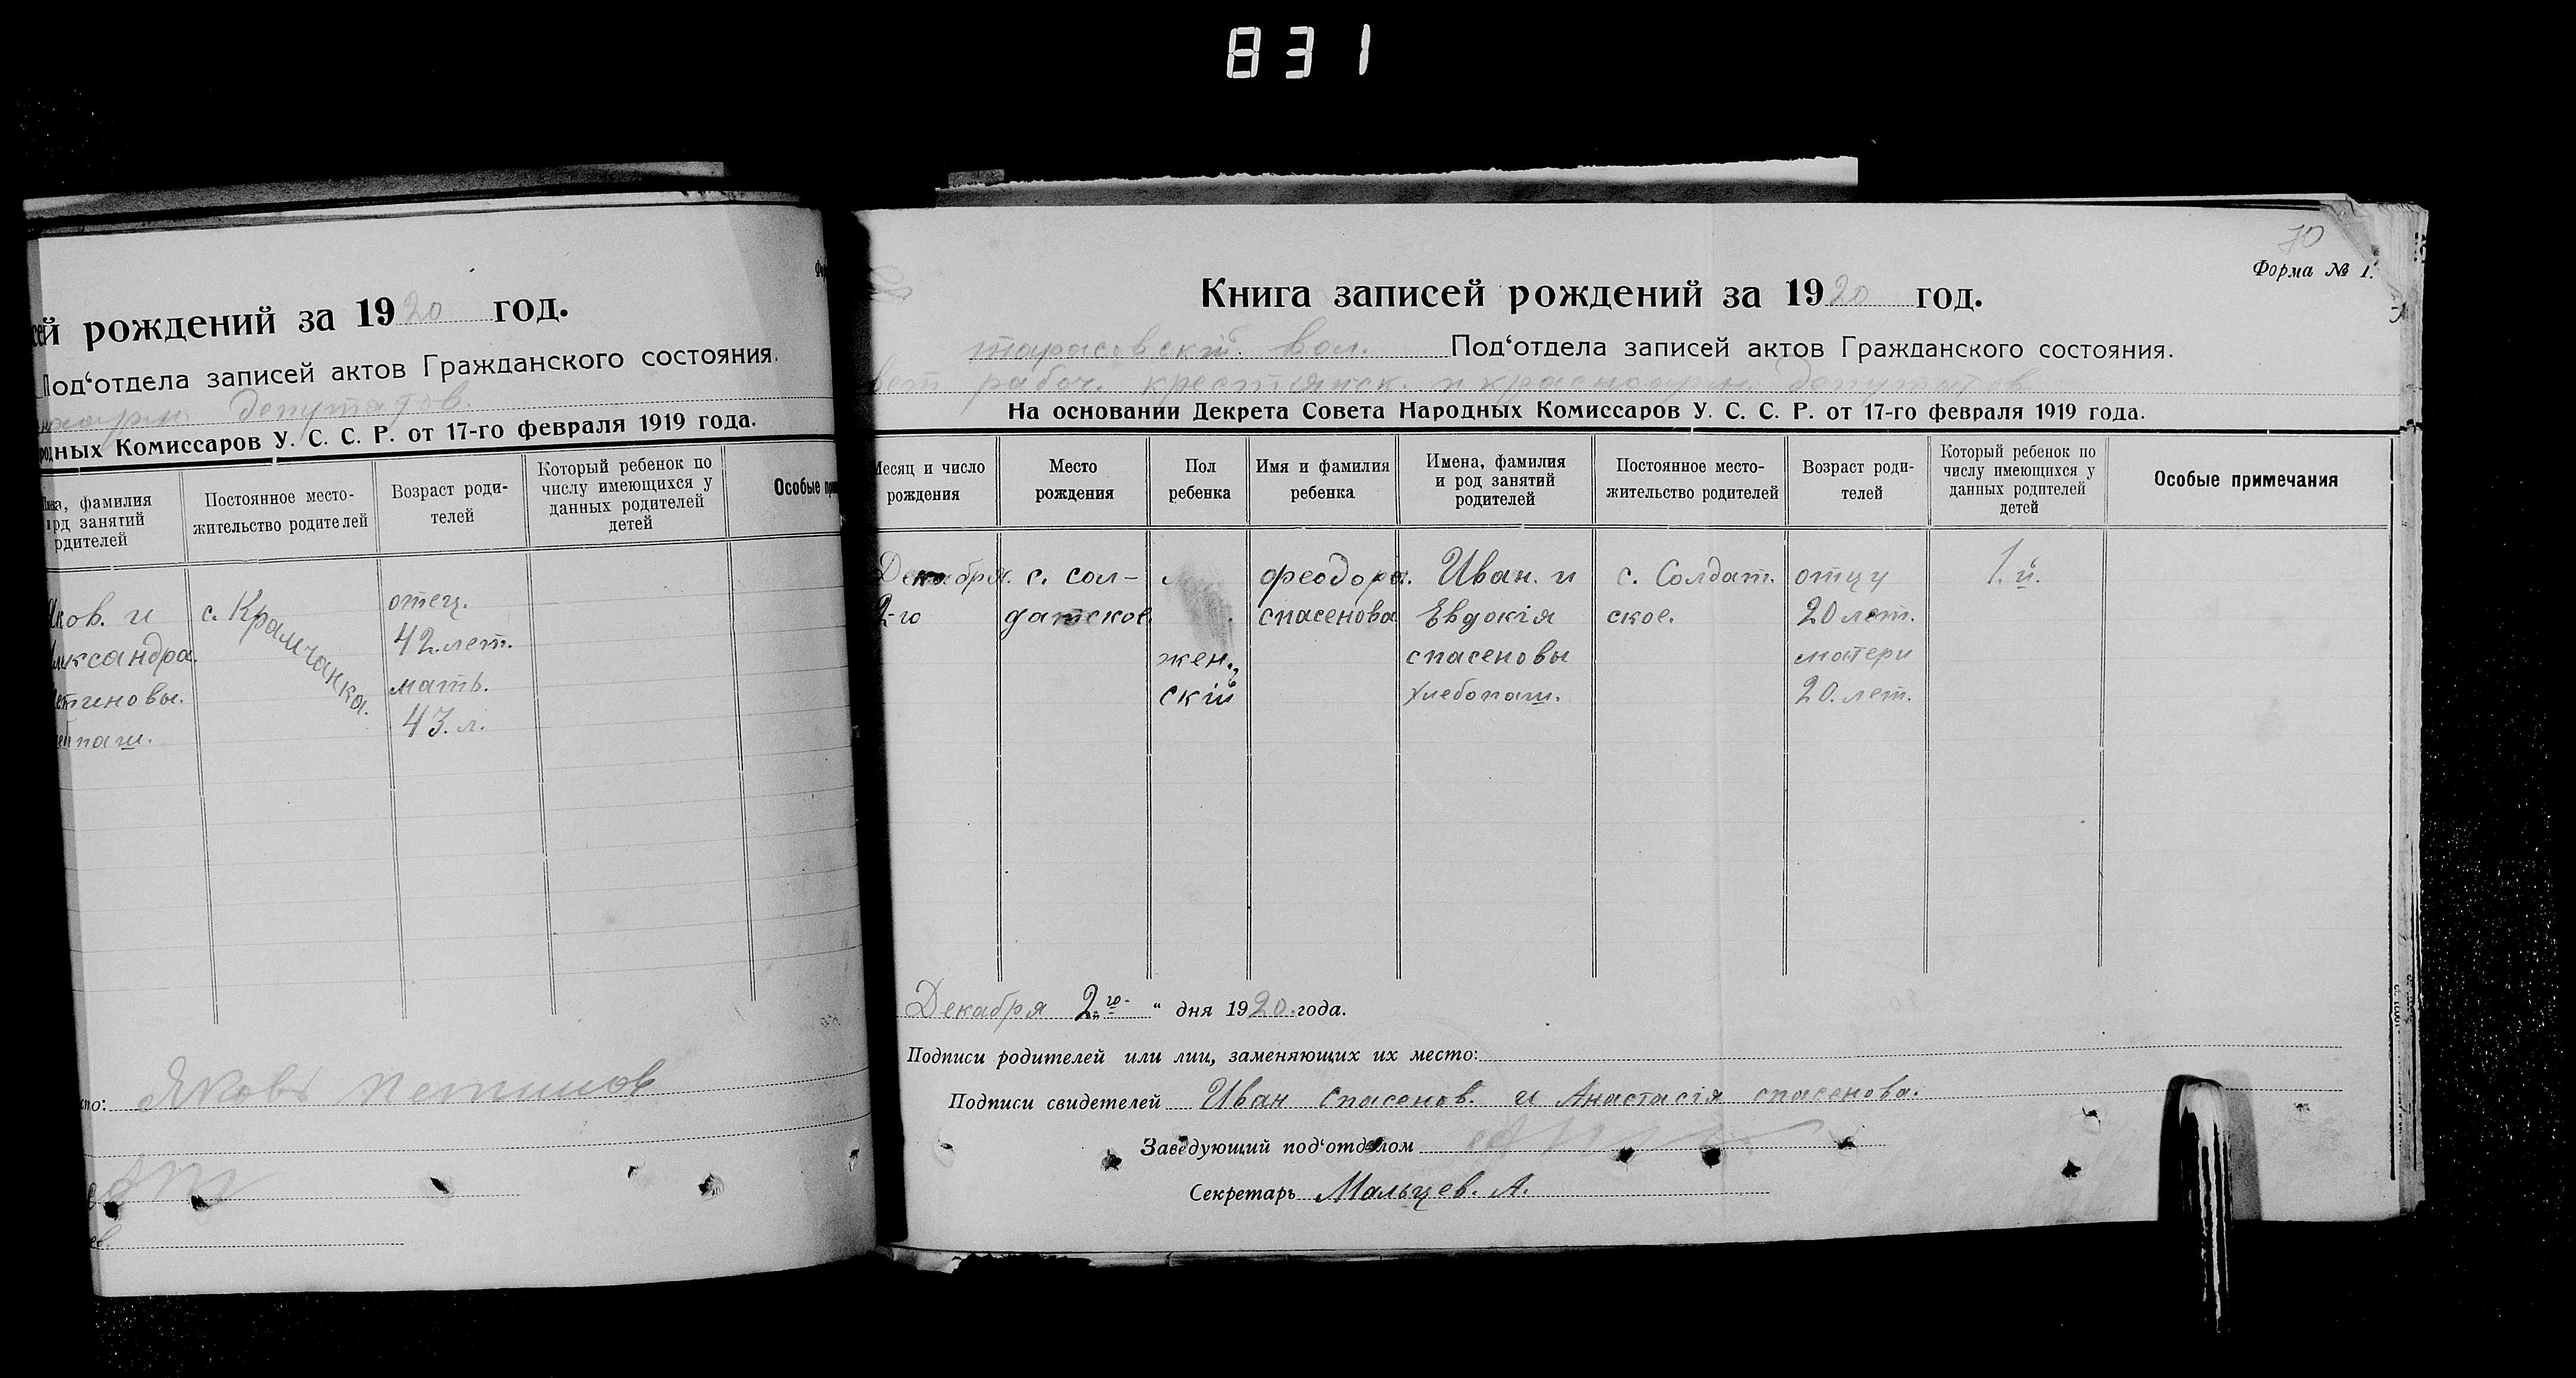 831
сей рождений за 1920 год.
Под‘отдела записей актов Гражданского состояния.
депутатов.
родных Комиссаров У. С. С. Р. от 17-го февраля 1919 года.
фамилия
занятий
Постоянное место-
жительство родителей
Возраст роди-
телей
Который ребенок по
числу имеющихся у
данных родителей
детей
Особые
Яков. и
Александра.
с. Крамчанка.
отец.
42. лет.
мать.
43. л.
Яковъ
70
Форма № 1.
Книга записей рождений за 1920 год.
тарасовскій. вол. Под‘отдела записей актов Гражданского состояния.
рабоч. крестьянск. и красноарм. депутатов
На основании Декрета Совета Народных Комиссаров У. С. С. Р. от 17-го февраля 1919 года.
Месяц и число
рождения
Место
рождения
Пол
ребенка
Имя и фамилия
ребенка
Имена, фамилия
и род занятий
родителей
Постоянное место-
жительство родителей
Возраст роди-
телей
Который ребенок по
числу имеющихся у
данных родителей
детей
Особые примечания
Декабря.
2-го
с. сол-
датское.
жен.
скій
феодора.
спасенова
Иван. и
Евдокія
спасеновы
хлебопаш.
с. Солдат.
ское.
отцу
20 лет.
матери
20. лет.
1. й.
Декабря 2.го „ дня 1920. года.
Подписи родителей или лиц, заменяющих их место:
Подписи свидетелей Иван Спасенов. и Анастасія спасенова.
Заведующий под‘отделом
Секретарь Мальцев. А.